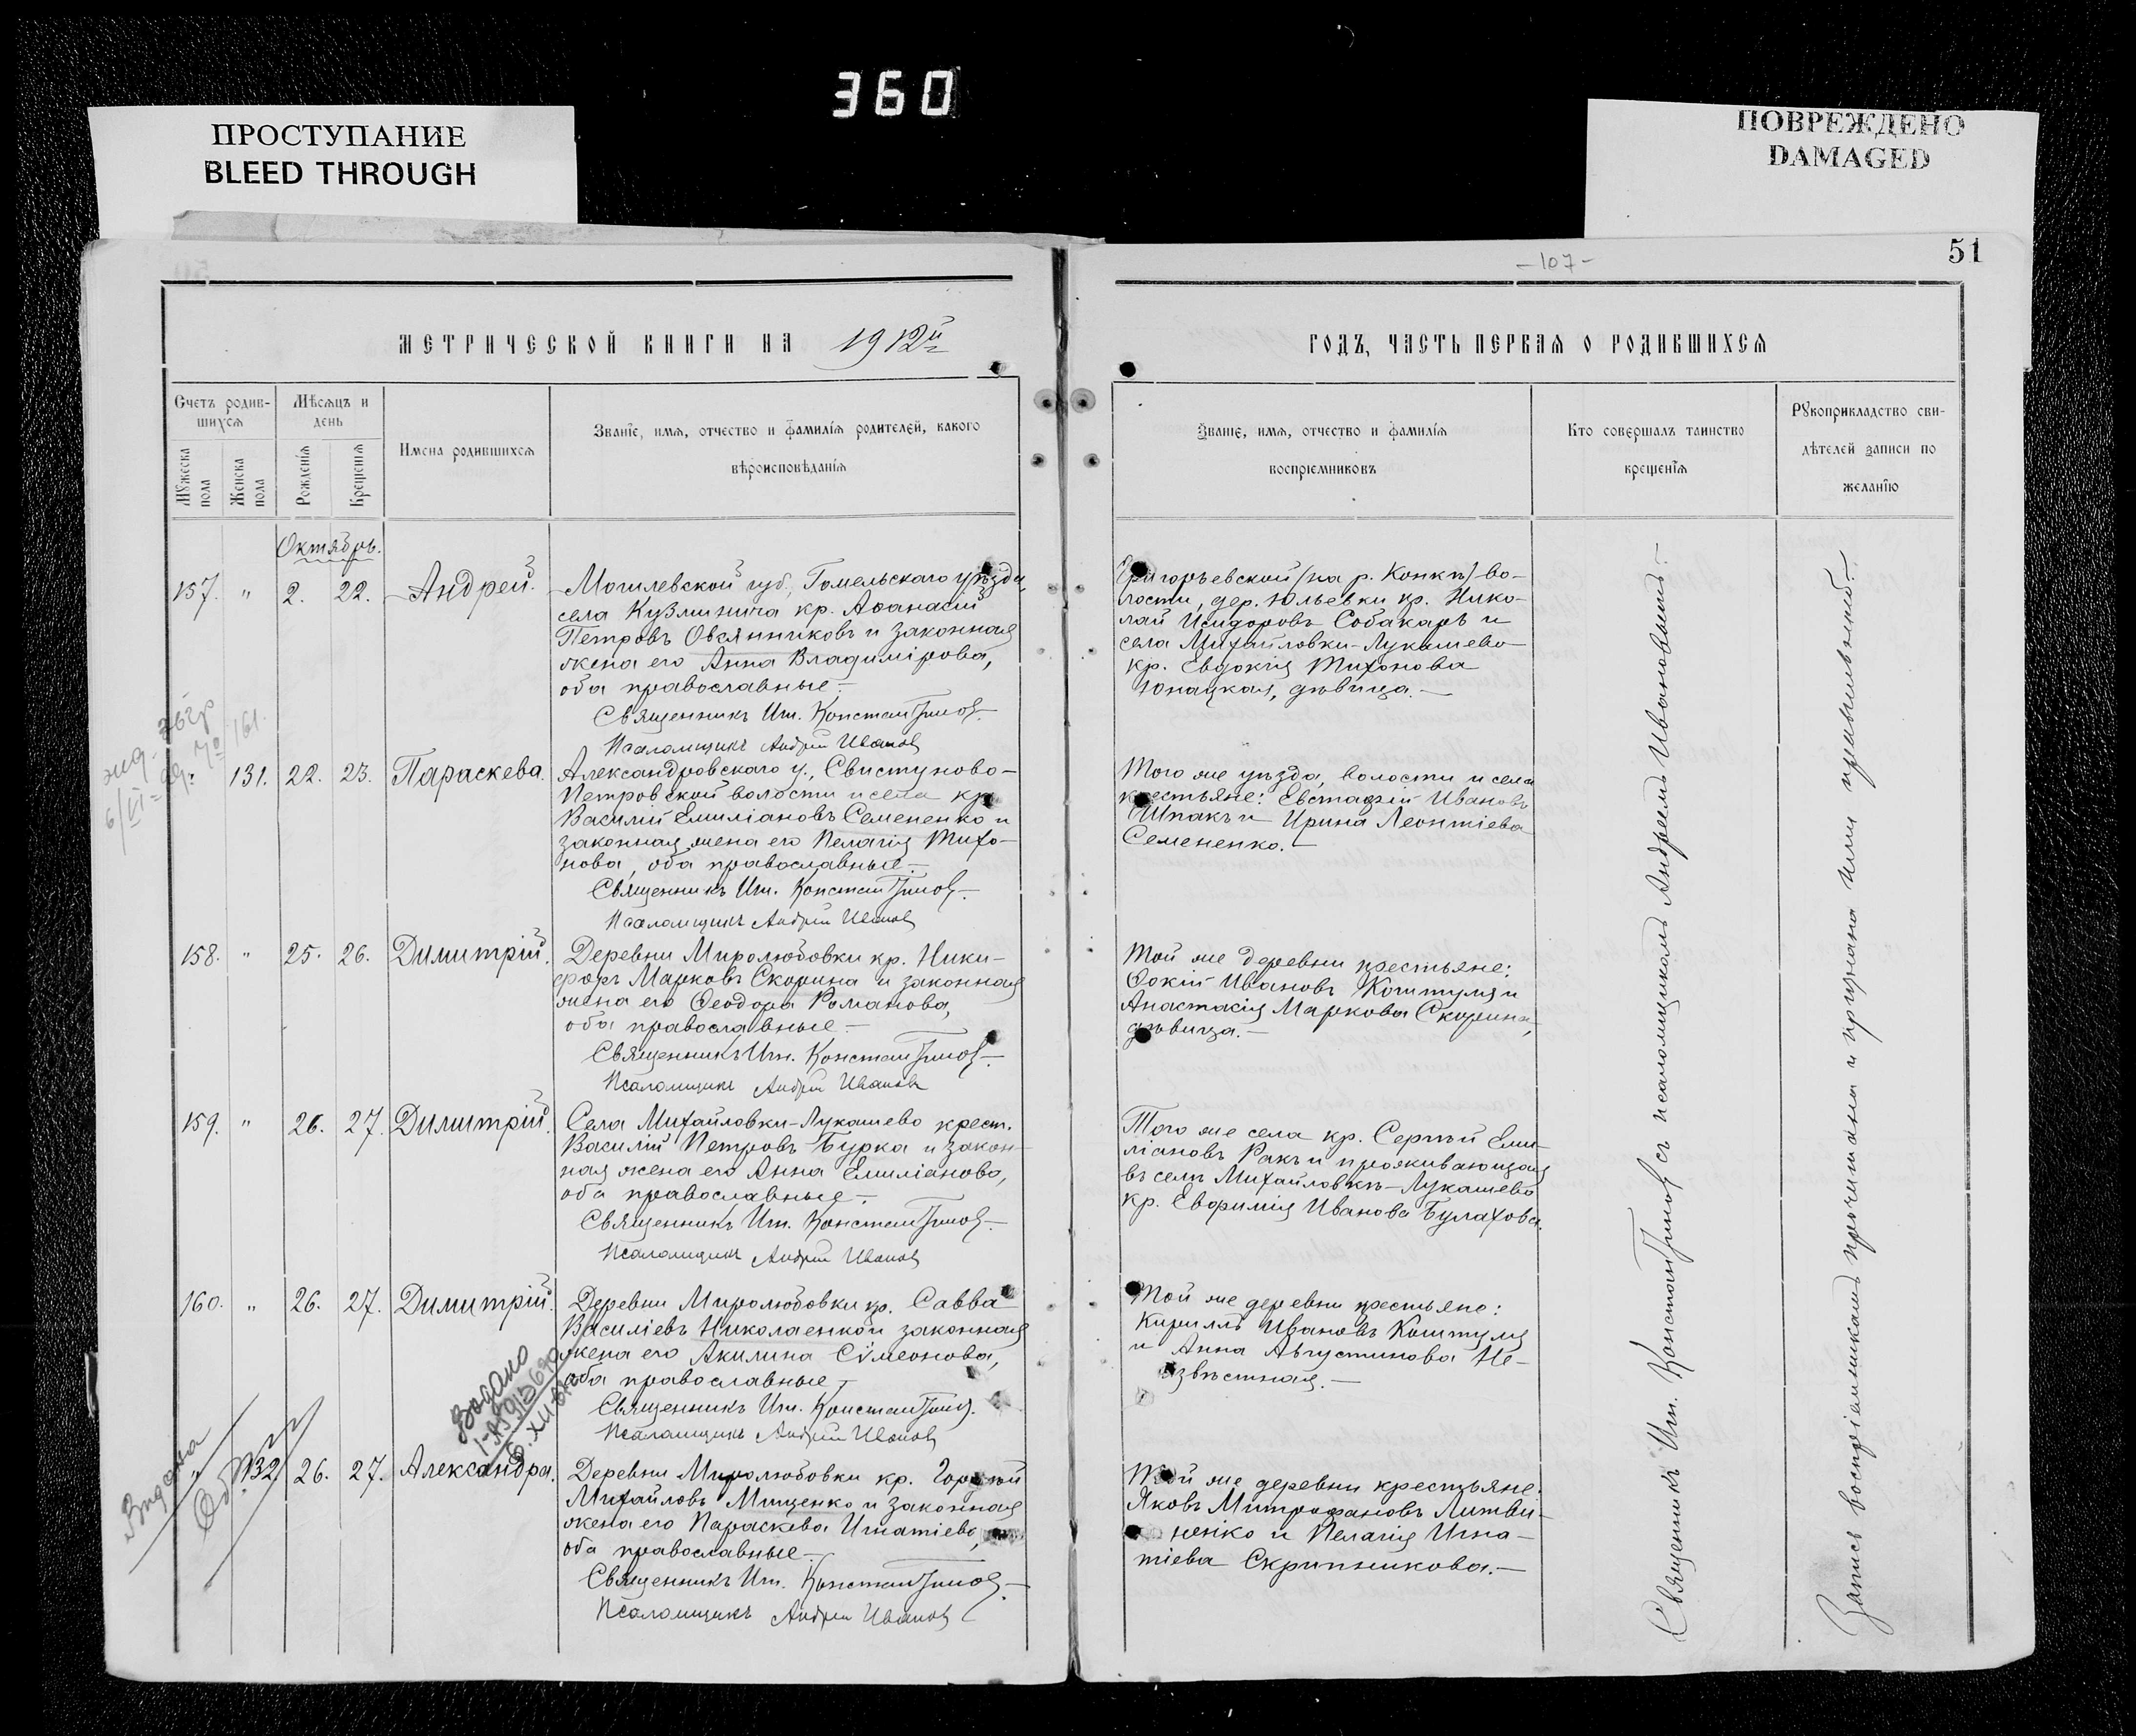 360
ПРОСТУПАНИЕ
BLEED THROUGH
ПОВРЕЖДЕНО
DAMAGED
51
-107-
МЕТРИЧЕСКОЙ КНИГИ НА 1912й
ГОДЪ, ЧАСТЬ ПЕРВАЯ О РОДИВШИХСЯ
Счетъ родив-
шихся
Мужеска пола
Женска пола
Мѣсяцъ и
день
Рожденія
Крещенія
Имена родившихся
Званіе, имя, отчество и фамилія родителей, какого
вѣроисповѣданія
Званіе, имя, отчество и фамилія
воспріемниковъ
Кто совершалъ таинство
крещенія
Рукоприкладство сви-
дѣтелей записи по
желанію
Октябрь.
157. " 2. 22. Андрей.
Могилевской губ., Гомельскаго уѣзда,
села Кузминича кр. Аѳанасій
Петровъ Овсянниковъ и законная
жена его Анна Владимірова,
оба православные.-
Священникъ Иг. Константиновъ.
Псаломщикъ Андрей Ивановъ
Григорьевской (на р. Конкѣ) во-
лости, дер. Юльевки кр. Нико-
лай Исидоровъ Собакарь и
села Михайловки-Лукашево
кр. Евдокія Тихонова
Юнацкая, дѣвица.-
" 131. 22. 23. Параскева.
Александровскаго у., Свистуново-
Петровской волости и села кр.
Василій Емиліановъ Семененко и
законная жена его Пелагія Тихо-
нова, оба православные.-
Священникъ Иг. Константиновъ.
Псаломщикъ Андрей Ивановъ
Того же уѣзда, волости и села
крестьяне: Евстаѳій Ивановъ
Шпакъ и Ирина Леонтіева
Семененко.-
158. " 25. 26. Димитрій.
Деревни Миролюбовки кр. Ники-
форъ Марковъ Скорина и законная
жена его Ѳеодора Романова,
оба православные.-
Священникъ Иг. Константиновъ.
Псаломщикъ Андрей Ивановъ
Той же деревни крестьяне:
Ѳокій Ивановъ Коштуля и
Анастасія Маркова Скорина,
дѣвица.-
159. " 26. 27. Димитрій.
Села Михайловки-Лукашево крест.
Василій Петровъ Бурка и закон-
ная жена его Анна Емиліанова,
оба православные.-
Священникъ Иг. Константиновъ.
Псаломщикъ Андрей Ивановъ
Того же села кр. Сергѣй Еми-
ліановъ Ракъ и проживающая
въ селѣ Михайловкѣ-Лукашево
кр. Евфимія Иванова Булахова.
160. " 26. 27. Димитрій.
Деревни Миролюбовки кр. Савва
Василіевъ Николаенко и законная
жена его Акилина Сѵмеонова,
оба православные.-
Священникъ Иг. Константиновъ.
Псаломщикъ Андрей Ивановъ
Той же деревни крестьяне:
Кириллъ Ивановъ Коштуля
и Анна Августинова Не-
извѣстная.-
" 132. 26. 27. Александра.
Деревни Миролюбовки кр. Гордѣй
Михайловъ Мищенко и законная
жена его Параскева Игнатіева,
оба православные.-
Священникъ Иг. Константиновъ.
Псаломщикъ Андрей Ивановъ
Той же деревни крестьяне:
Яковъ Митрофановъ Литви-
ненко и Пелагія Игна-
тіева Скрипникова.-
Священникъ Иг. Константиновъ съ псаломщикомъ Андреемъ Ивановымъ.-
Запись воспріемниками прочитана и признана ими правильной.-